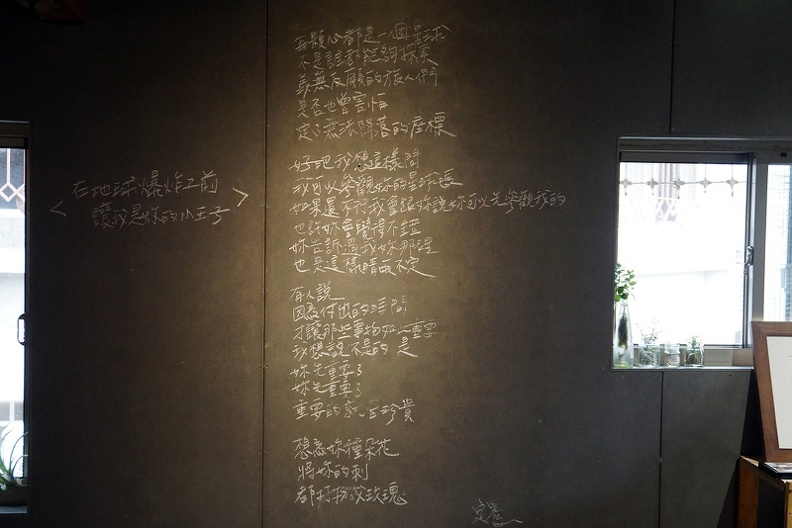 <在地球爆炸之前
讓我是妳的小王子>
每顆心都是一個星球
不是誰都能夠探索
義無反顧的旅人們
是否也曾害怕
定了無法降落的座標
好吧我想這樣問
我可以參觀妳的星球長
如果還不行我會跟妳說妳可以先參觀我的
也許妳會覺得不錯
妳告訴過我妳那裡
也是這樣晴雨不定
有人說
因為付出的時間
才讓那些事物如此重要
我想說不是的 是
妳先重要了
妳先重要了
重要的就是珍貴
想為妳種朵花
將妳的刺
都打扮成玫瑰